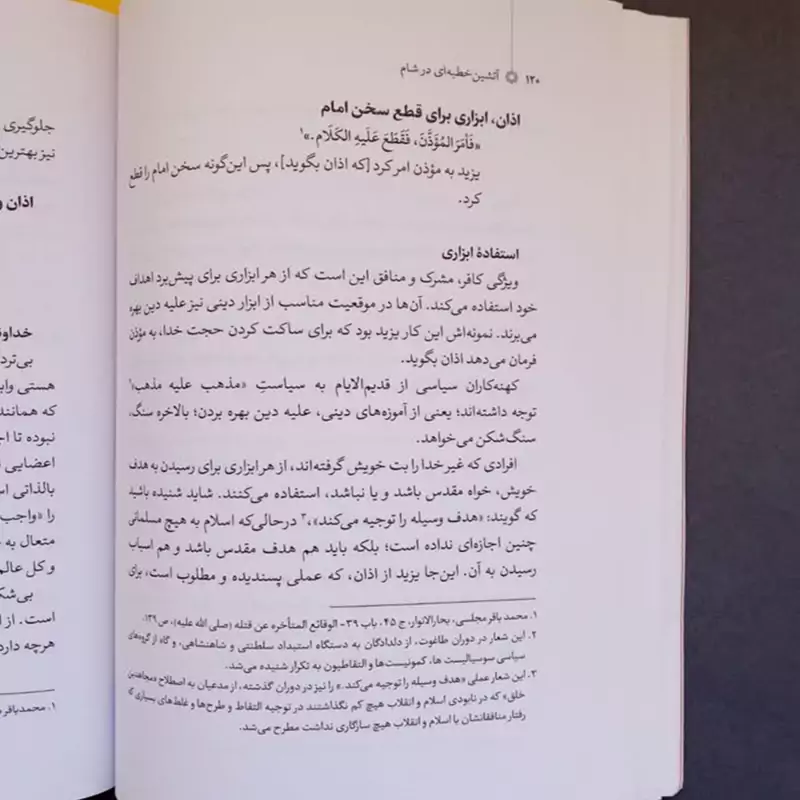 ۱۲۰ آتشین خطبه‌ای در شام
اذان، ابزاری برای قطع سخن امام
«فَأَمَرَ المُؤَذِّنَ، فَقَطَعَ عَلَیهِ الکَلَام.»۱
یزید به مؤذن امر کرد [که اذان بگوید]، پس این‌گونه سخن امام را قطع
کرد.
استفادهٔ ابزاری
ویژگی کافر، مشرک و منافق این است که از هر ابزاری برای پیش‌برد اهداف
خود استفاده می‌کند. آن‌ها در موقعیت مناسب از ابزار دینی نیز علیه دین بهره
می‌برند. نمونه‌اش این کار یزید بود که برای ساکت کردن حجت خدا، به مؤذن
فرمان می‌دهد اذان بگوید.
کهنه‌کاران سیاسی از قدیم‌الایام به سیاستِ «مذهب علیه مذهب»۲
توجه داشته‌اند؛ یعنی از آموزه‌های دینی، علیه دین بهره بردن؛ بالاخره سنگ،
سنگ‌شکن می‌خواهد.
افرادی که غیر خدا را بت خویش گرفته‌اند، از هر ابزاری برای رسیدن به هدف
خویش، خواه مقدس باشد و یا نباشد، استفاده می‌کنند. شاید شنیده باشید
که گویند: «هدف وسیله را توجیه می‌کند»،۳ درحالی‌که اسلام به هیچ مسلمانی
چنین اجازه‌ای نداده است؛ بلکه باید هم هدف مقدس باشد و هم اسباب
رسیدن به آن. این‌جا یزید از اذان، که عملی پسندیده و مطلوب است، برای
۱. محمد باقر مجلسی، بحارالانوار، ج ۴۵، باب ۳۹- الوقائع المتأخره عن قتله (صلی الله علیه)، ص ۱۳۹.
۲. این شعار در دوران طاغوت، از دلدادگان به دستگاه استبداد سلطنتی و شاهنشاهی، و گاه از گروه‌های
سیاسی سوسیالیست ها، کمونیست‌ها و التقاطیون به تکرار شنیده می‌شد.
۳. این شعار عملی «هدف وسیله را توجیه می‌کند.» را نیز در دوران گذشته، از مدعیان به اصطلاح «مجاهدین
خلق» که در نابودی اسلام و انقلاب هیچ کم نگذاشتند در توجیه التقاط و طرح‌ها و غلط‌های بسیاری که
رفتار منافقانشان با اسلام و انقلاب هیچ سازگاری نداشت مطرح می‌شد.
جلوگیری
نیز بهترین
اذان و
خداوند
بی‌ترد
هستی وابـ
که همانند
نبوده تا اجـ
اعضایی
بالذاتی اس
را «واجب
متعال به
و کل عالم
بی‌شک
است. از ا
هرچه دارد
۱. محمدباقر